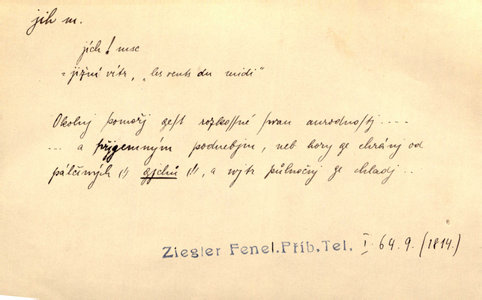 jih m.
jích ! msc
= jižní vítr, „les vents du midi“
Okolnj pomořj gest rozkossné pran aurodnostj ....
... a přjgemným podnebjm, neb hory ge chránj od
pálčiwých (!) gjchů (!), a wjtr půlnočnj ge chladj ..
Ziegler Fenel.Příb.Tel. I. 69. 9. (1814.)